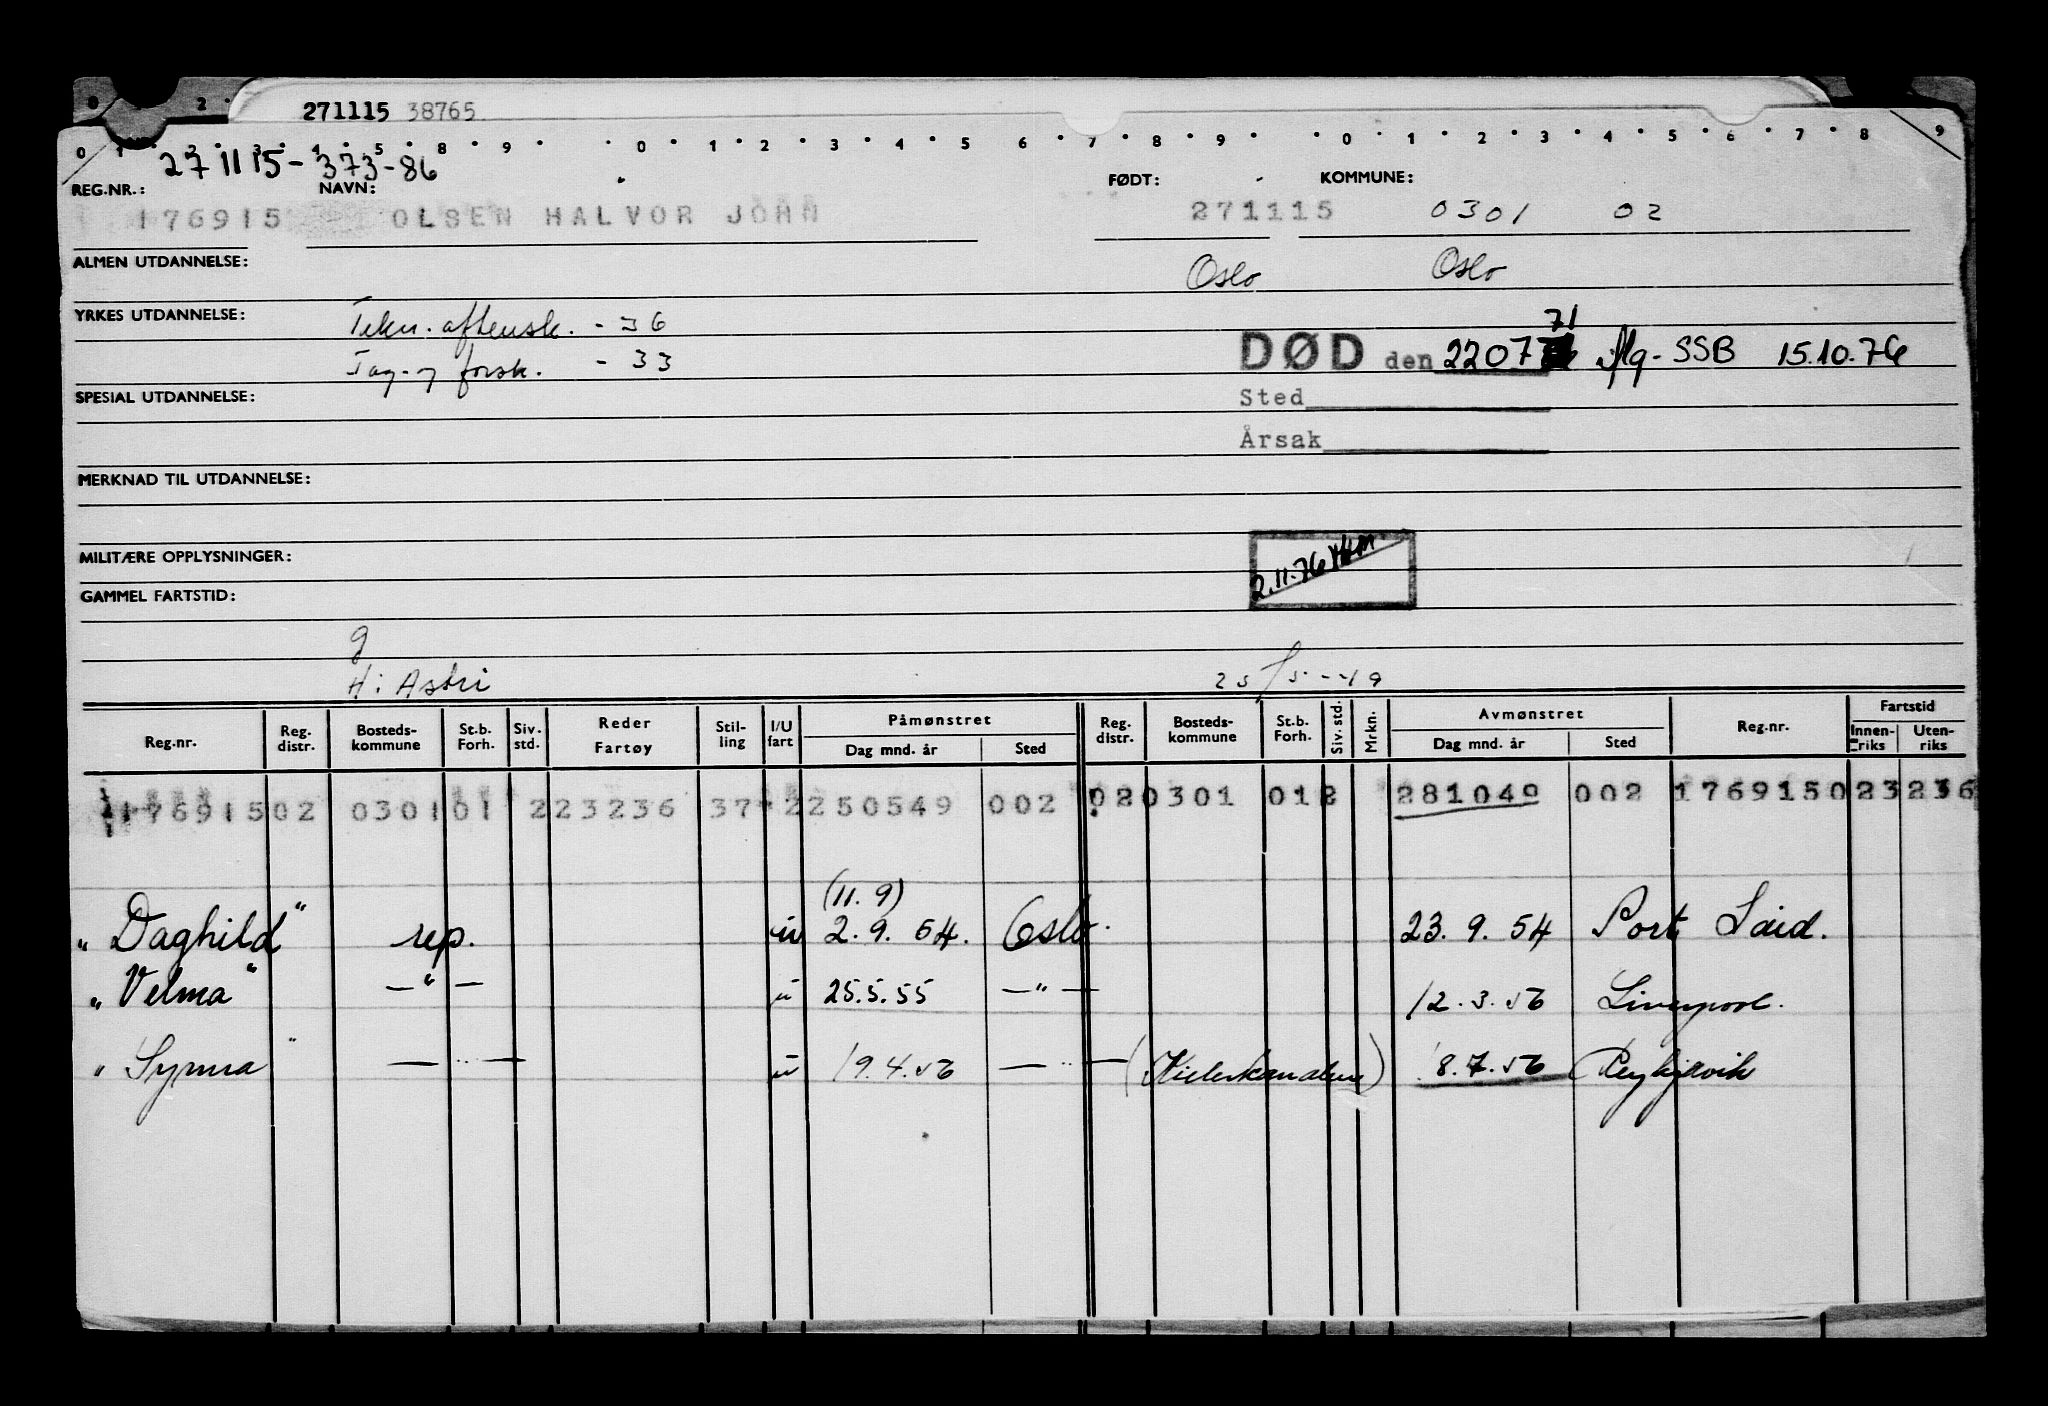 271115 38765
0 1 2 3 4 5 8 9 0 1 2 3 4 5 6 7 8 9 0 1 2 3 4 5 6 7 8 9
271115-373-86
REG.NR.: NAVN: FØDT: KOMMUNE:
176915 OLSEN HALVOR JOHN 271115 0301 02
ALMEN UTDANNELSE: Oslo Oslo
YRKES UTDANNELSE: Tekn. aftensk. - 36
71
DØD den 2207 iflg. SSB 15.10.76
forsk. - 33
SPESIAL UTDANNELSE: Sted
Årsak
MERKNAD TIL UTDANNELSE:
MILITÆRE OPPLYSNINGER: 2.11.76
GAMMEL FARTSTID:
g
H: Astri 25/5-49
Reg.nr. Reg. distr. Bosteds-kommune St.b. Forh. Siv. std. Reder Fartøy Stil-ling I/U fart Påmønstret Dag mnd. år Sted Reg. distr. Bosteds-kommune St.b. Forh. Siv. std. Mrkn. Avmønstret Dag mnd. år Sted Reg.nr. Fartstid Innen-riks Uten-riks
17691502 030101 223236 37 2250549 002 020301 012 281049 002 176915023236
(11.9)
"Daghild" rep. u 2.9.54. Oslo. 23.9.54 Port Said.
"Velma" —"— u 25.5.55 —"— 12.3.56 Liverpool.
"Syrma" —"— u 19.4.56 —"— (Kielerkanalen) 18.7.56 Reykjavik